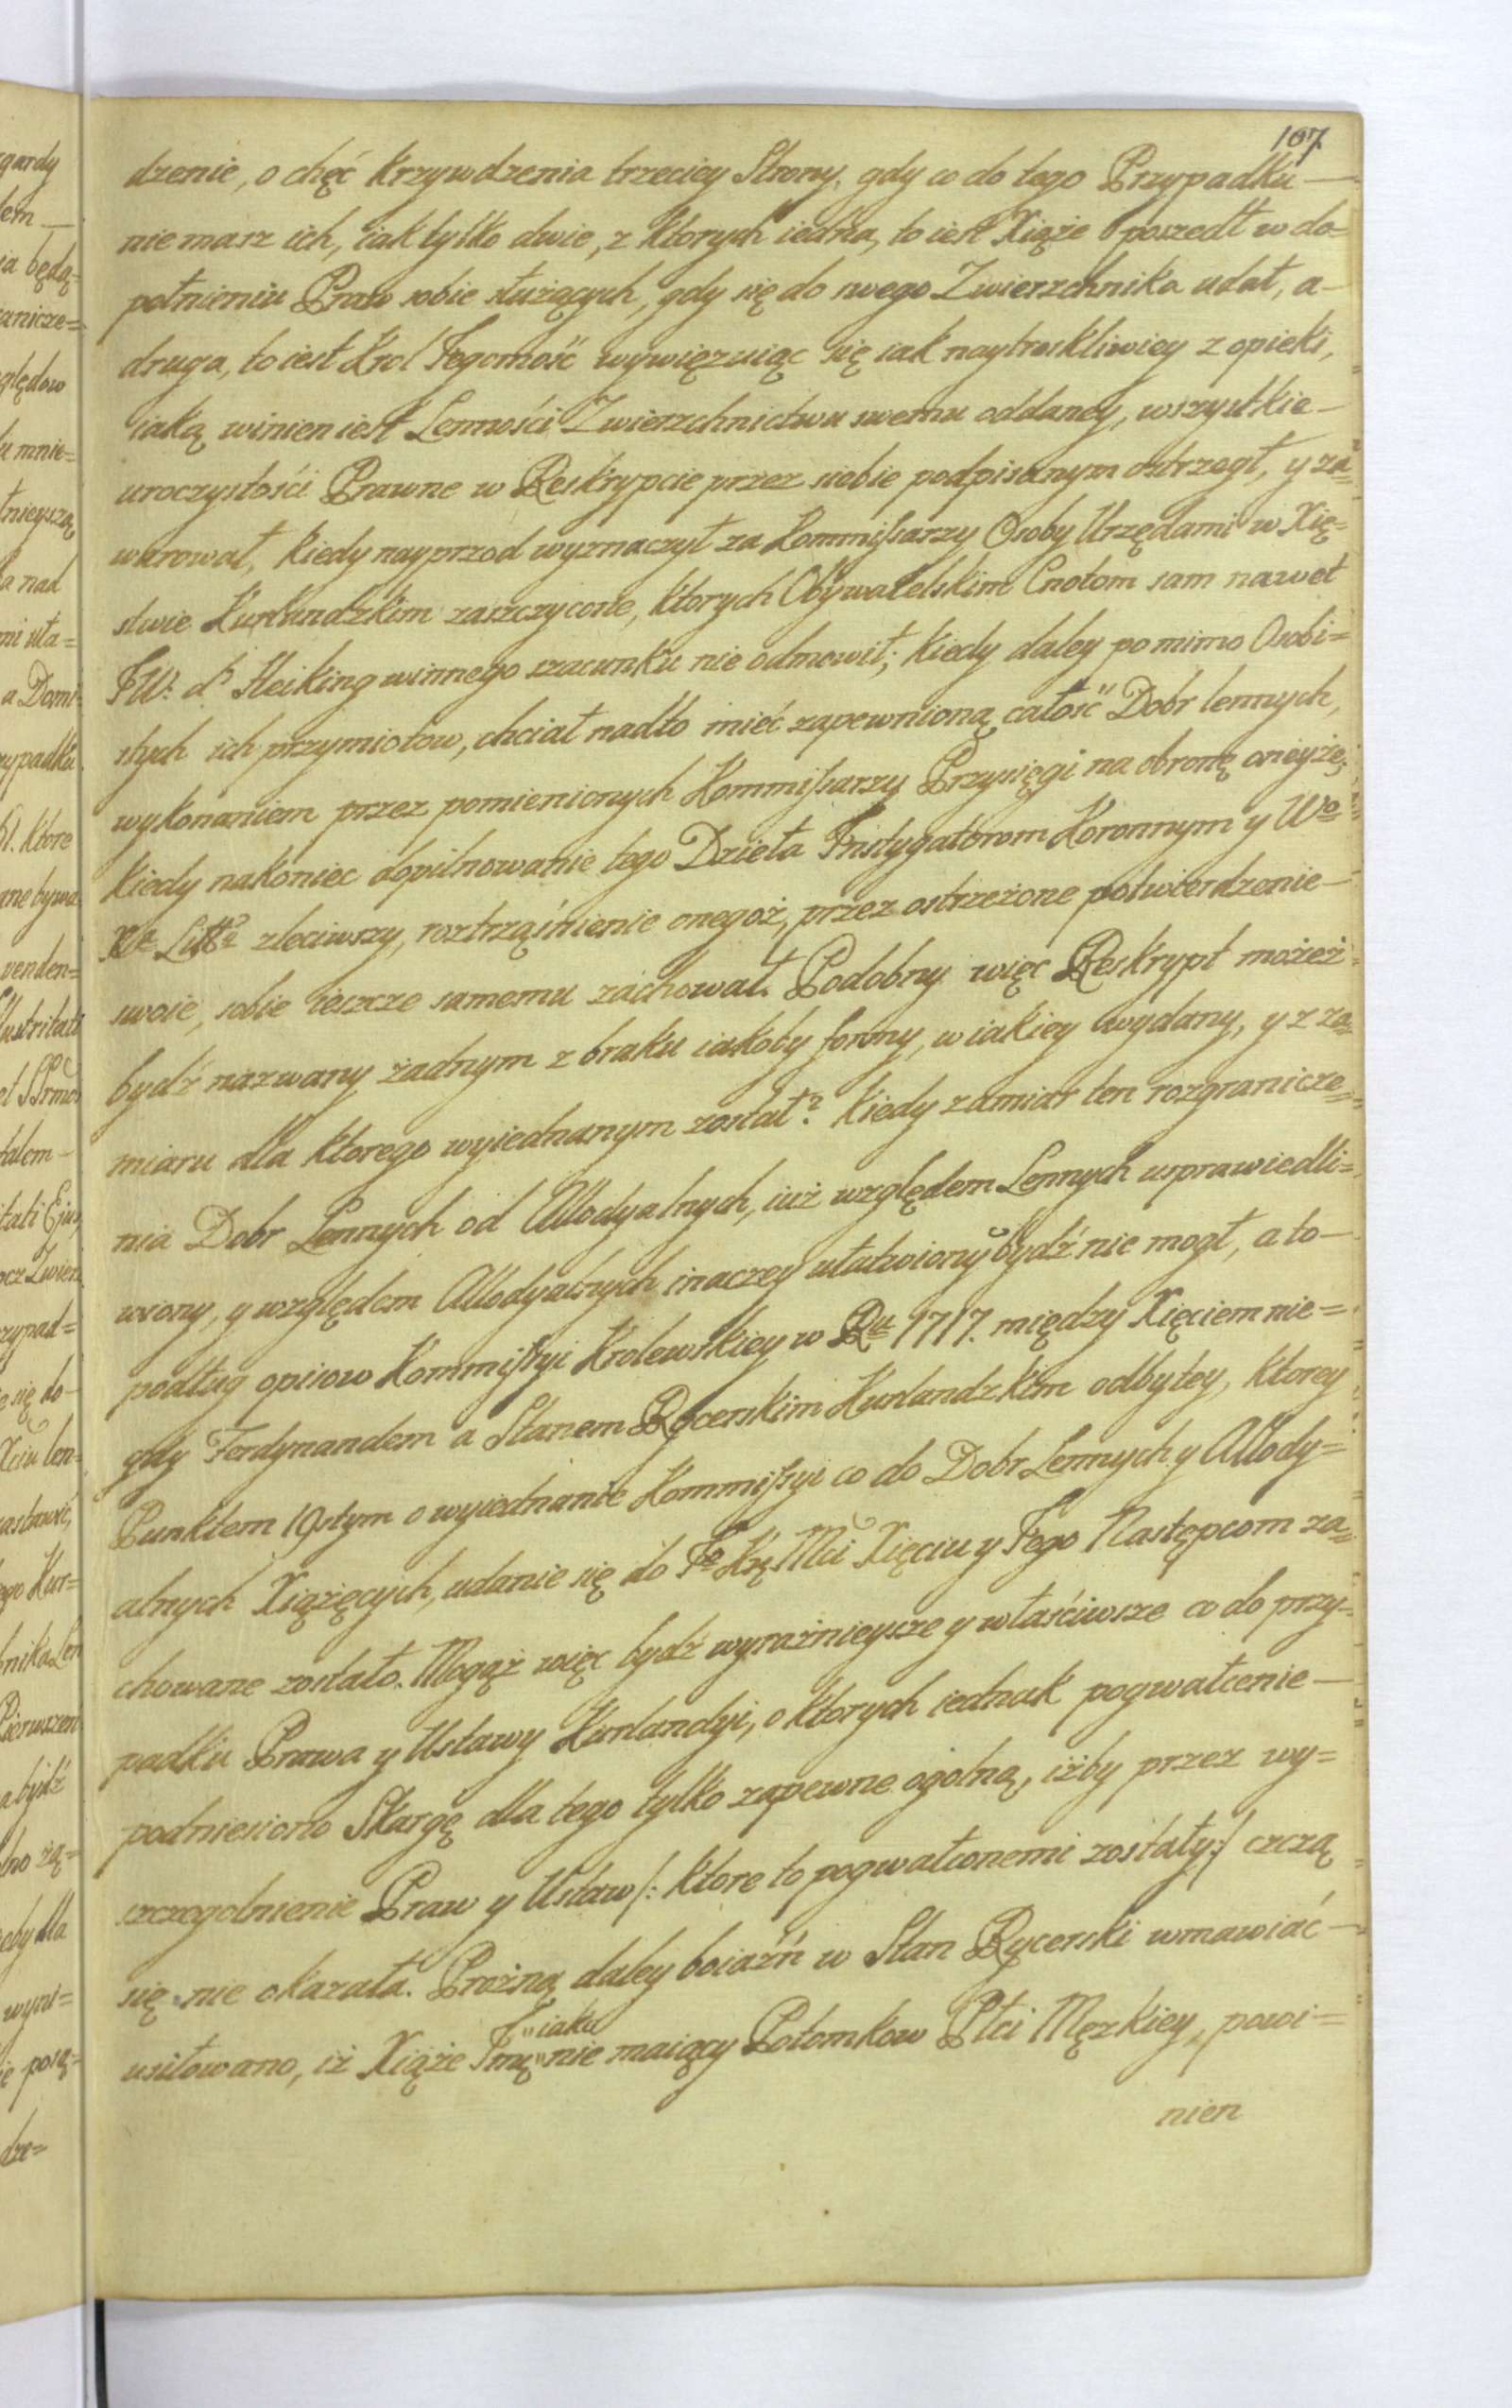 107.
dzenie, o chęć krzywdzenia trzeciey Strony, gdy co do tego Przypadku —
nie masz ich, iak tylko dwie, z ktorych iedna, to iest Xiąże poszedł w do=
pełnieniu Praw sobie służących, gdy się do swego Zwierzchnika udał, a —
druga, to iest Krol Jegomość wywięzuiąc się iak naytroskliwiey z opieki,
iaką winien iest Lenności Zwierzchnictwu swemu oddaney, wszystkie —
uroczystości Prawne w Reskrypcie przez siebie podpisanym ostrzegł, y za=
warował, kiedy nayprzod wyznaczył za Kommissarzy Osoby Urzędami w Xię=
stwie Kurlandzkim zaszczycone, ktorych Obywatelskim Cnotom sam nawet
JW: d' Heiking winnego szacunku nie odmowił; kiedy daley pomimo Osobi=
stych ich przymiotow, chciał nadto mieć zapewnioną całość Dobr lennych,
wykonaniem przez pomienionych Kommissarzy Przysięgi na obronę oneyże;
kiedy nakoniec dopilnowanie tego Dzieła Instygatorom Koronnym y Wo
Xa Litto zleciwszy, roztrząśnienie onegoż, przez ostrzeżone potwierdzenie —
swoie, sobie ieszcze samemu zachował. Podobny więc Reskrypt możeż
bydź nazwany żadnym z braku iakoby formy, w iakiey wydany, y z za=
miaru dla ktorego wyiednanym został? kiedy zamiar ten rozgranicze=
nia Dobr Lennych od Allodyalnych, iuż względem Lennych usprawiedli=
wiony, y względem Allodyalnych inaczey ułatwiony bydź nie mogł, a to —
podług opisow Kommissyi Krolewskiey w Ru 1717. między Xięciem nie=
gdy Ferdynandem a Stanem Rycerskim Kurlandzkim odbytey, ktorey
Punktem 19stym o wyiednanie Kommissyi co do Dobr Lennych y Allody=
alnych Xiążęcych, udanie się do Jo Kę Mci Xięciu y Jego Następcom za=
chowane zostało. Mogąż więc bydź wyraźnieysze y właściwsze co do przy=
padku Prawa y Ustawy Kurlandyi, o ktorych iednak pogwałcenie —
podniesiono Skargę dla tego tylko zapewne ogolną, iżby przez wy=
szczegolnienie Praw y Ustaw /: ktore to pogwałconemi zostały :/ czczą
się nie okazała. Prożną daley boiaźń w Stan Rycerski wmawiać —
usiłowano, iż Xiąże Jmę " iako " nie maiący Potomkow Płci Męzkiey, powi=
nien